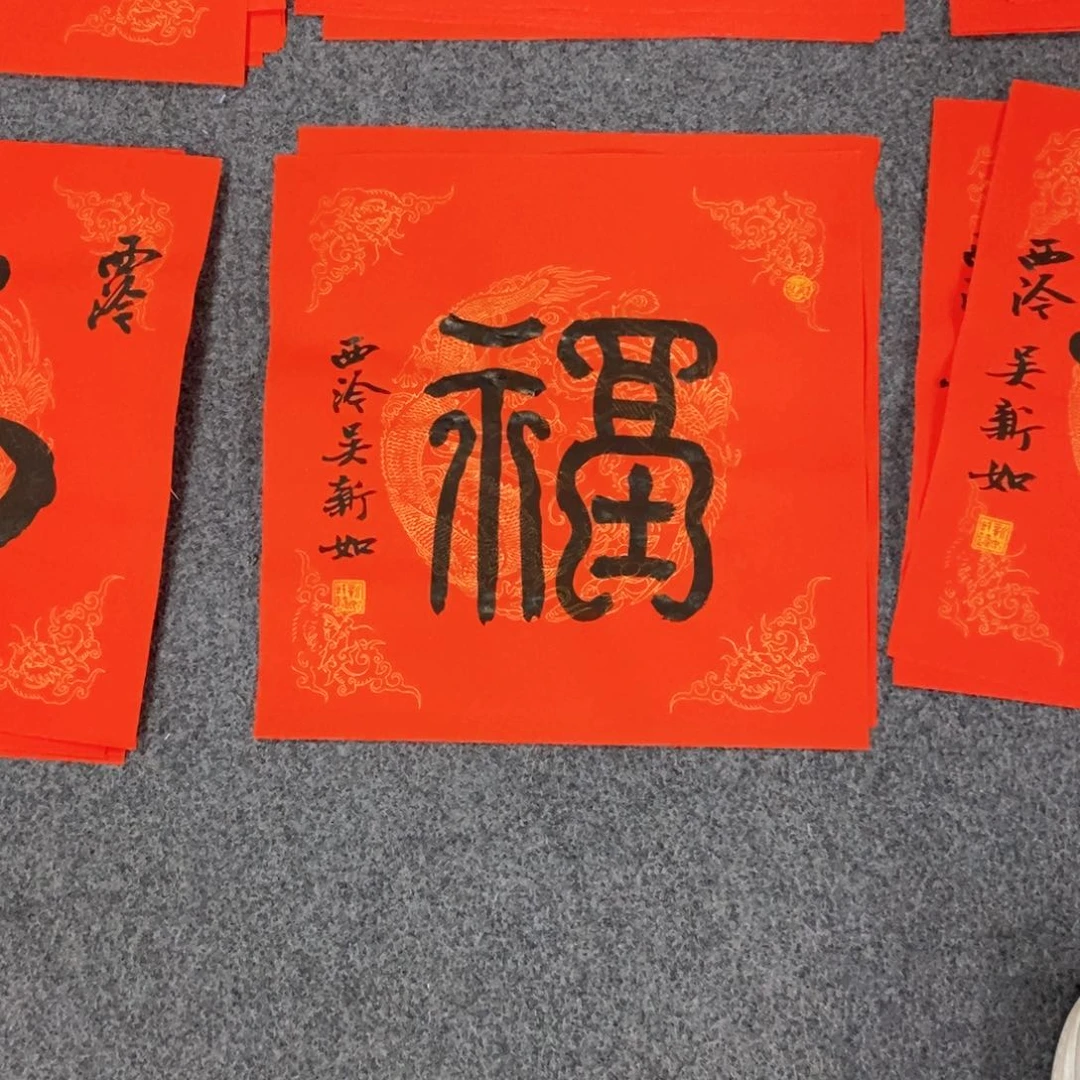 西泠
福
西泠吴新如
西泠
吴新如